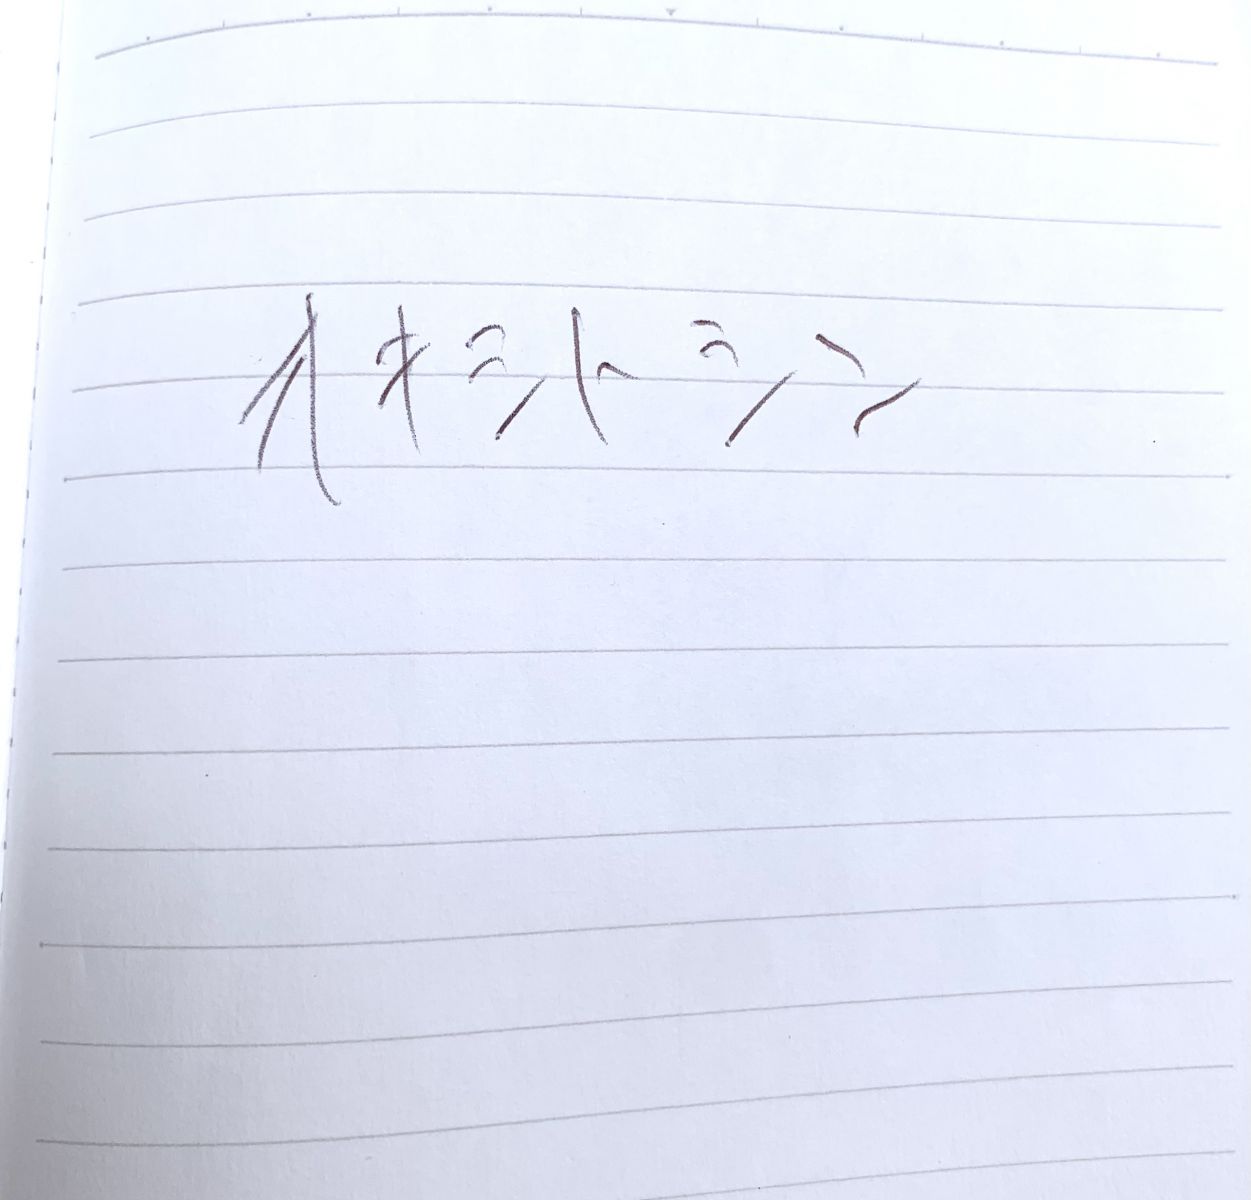 オキシトシン